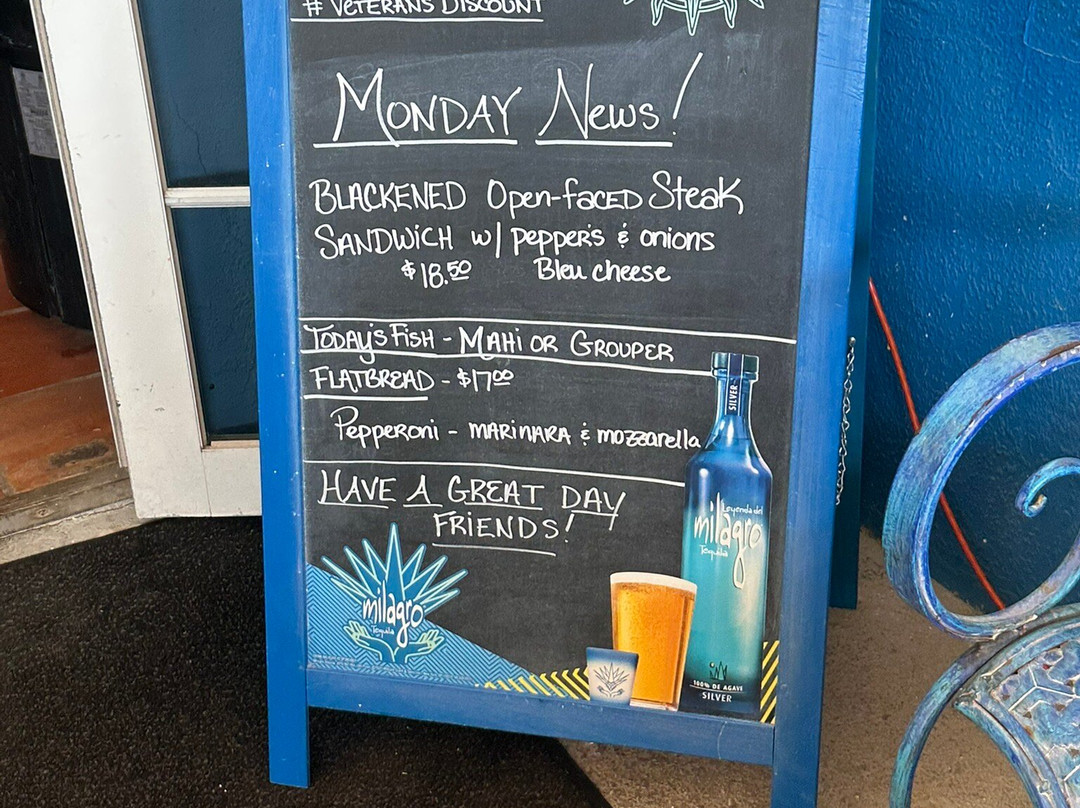 # VETERANS DISCOUNT
MONDAY News!
BLACKENED Open-FACED Steak
SANDWICH w/ pepper's & onions
$18.50 Bleu cheese
TODAY'S FISH - MAHI OR GROUPER
FLATBREAD - $17.00
Pepperoni - MARINARA & mozzarella
HAVE A GREAT DAY
FRIENDS!
SILVER
Leyenda del
milagro
Tequila
milagro
Tequila
100% DE AGAVE
SILVER